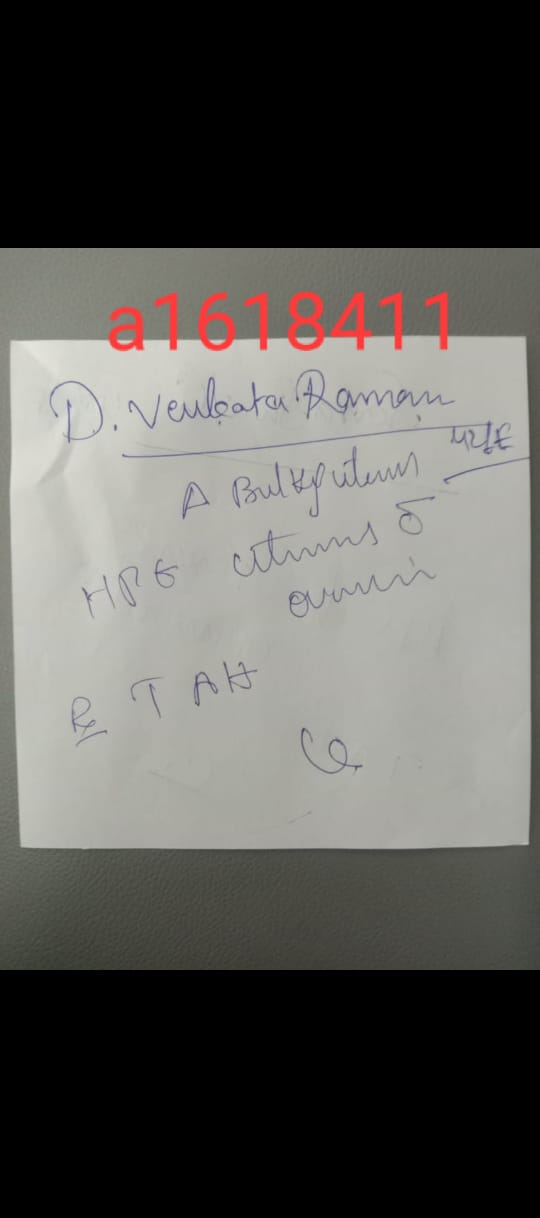 a1618411
D. Venkata Raman
42/F
A Bulky uterus
HPE uterus c̄
ovaries
Rx TAH